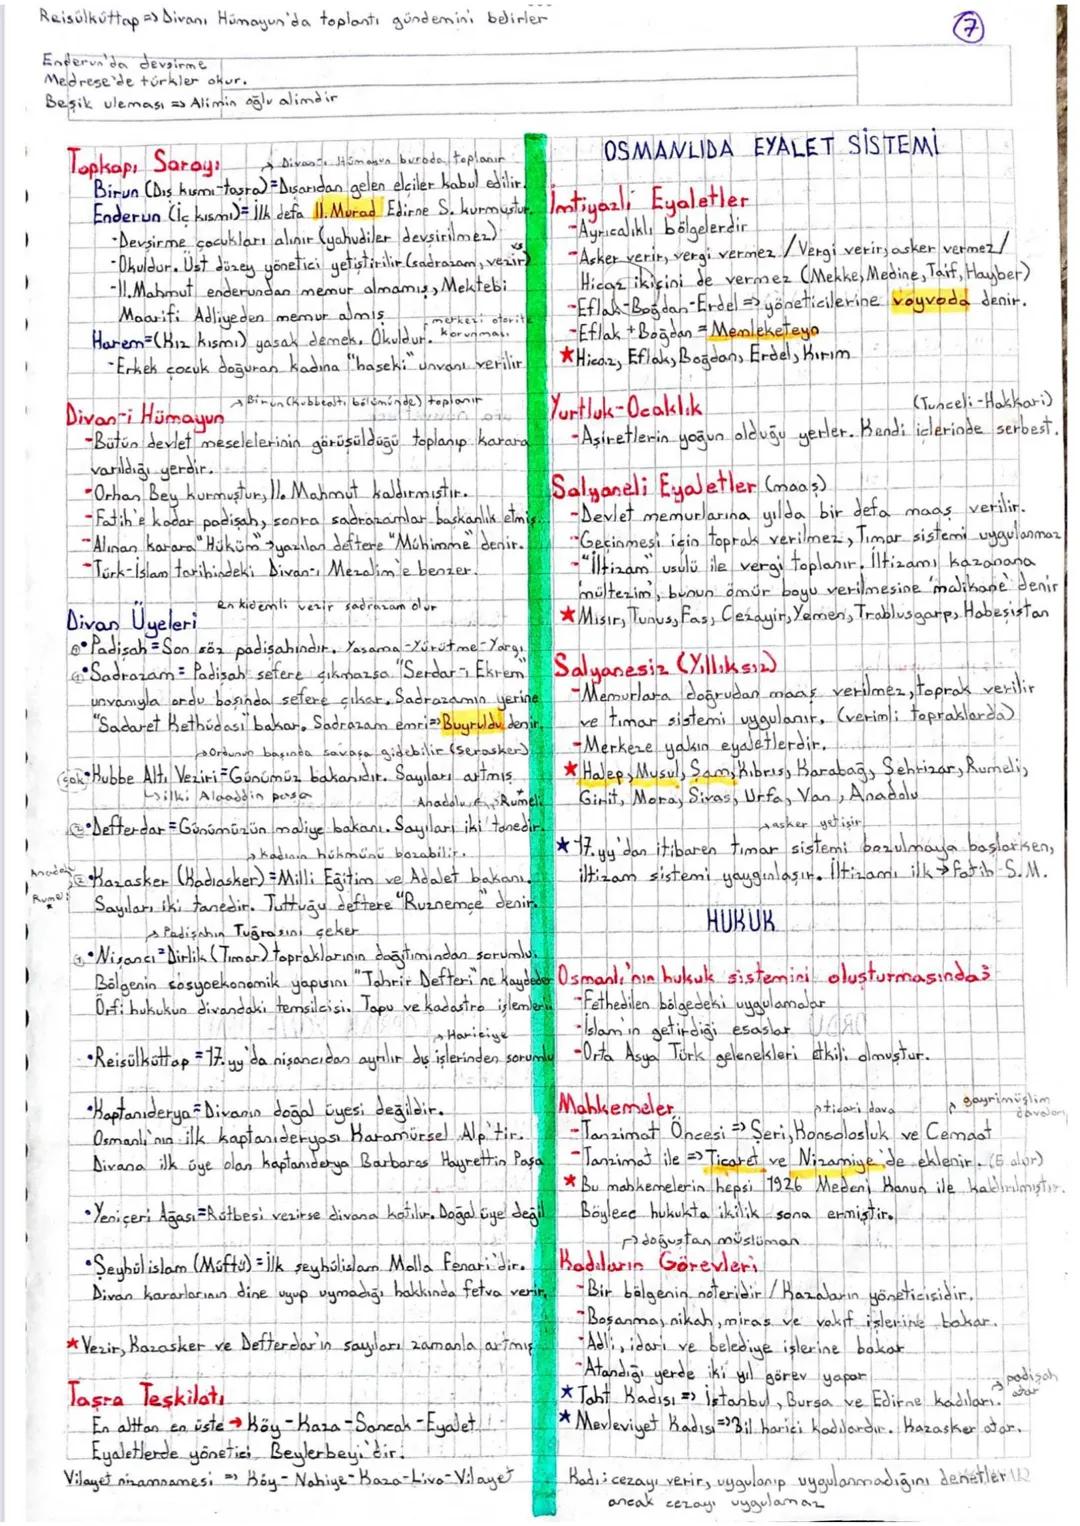 Reisülküttap => Divanı Hümayun'da toplantı gündemini belirler
7
Enderun'da devşirme
Medrese'de türkler okur.
Beşik uleması => Alimin oğlu alimdir
Topkapı Sarayı
→ Divan-ı Hümayun burada toplanır
Birun (Dış kısmı-taşra) = Dışarıdan gelen elçiler kabul edilir.
Enderun (İç kısmı) = İlk defa II. Murad Edirne S. kurmuştur.
-Devşirme çocukları alınır (yahudiler devşirilmez)
-Okuldur. Üst düzey yönetici yetiştirilir (sadrazam, vezir vs)
-II. Mahmut enderundan memur almamış, Mektebi
Maarifi Adliyeden memur almış
merkezi otorite korunması
Harem = (Kız kısmı) yasak demek. Okuldur.
-Erkek çocuk doğuran kadına "haseki" unvanı verilir
Divan-i Hümayun
→ Birun (Kubbealtı bölümünde) toplanır
-Bütün devlet meselelerinin görüşüldüğü toplanıp karara
varıldığı yerdir.
-Orhan Bey kurmuştur, II. Mahmut kaldırmıştır.
-Fatih'e kadar padişah, sonra sadrazamlar başkanlık etmiş.
-Alınan karara "Hüküm" → yazılan deftere "Mühimme" denir.
-Türk-İslam tarihindeki Divan-ı Mezalim'e benzer.
en kıdemli vezir sadrazam olur
Divan Üyeleri
•Padişah = Son söz padişahındır. Yasama-Yürütme-Yargı
•Sadrazam = Padişah sefere çıkmazsa "Serdar-ı Ekrem"
unvanıyla ordu başında sefere çıkar. Sadrazamın yerine
"Sadaret Kethüdası" bakar. Sadrazam emri => Buyruldu denir.
→ Ordunun başında savaşa gidebilir (serasker)
(çok) •Kubbe Altı Veziri = Günümüz bakanıdır. Sayıları artmış
↳ ilki Alaaddin paşa
Anadolu Rumeli
② •Defterdar = Günümüzün maliye bakanı. Sayıları iki tanedir.
→ kadının hükmünü bozabilir.
Anadolu
Rumeli
② •Kazasker (Kadıasker) = Milli Eğitim ve Adalet bakanı.
Sayıları iki tanedir. Tuttuğu deftere "Ruznemçe" denir.
→ Padişahın Tuğrasını çeker
① •Nişancı = Dirlik (Tımar) topraklarının dağıtımından sorumlu.
Bölgenin sosyoekonomik yapısını "Tahrir Defteri"ne kaydeder
Örfi hukukun divandaki temsilcisi. Tapu ve kadastro işlemleri
→ Hariciye
•Reisülküttap = 17.yy'da nişancıdan ayrılır dış işlerinden sorumlu
•Kaptanıderya = Divanın doğal üyesi değildir.
Osmanlı'nın ilk kaptanıderyası Karamürsel Alp'tir.
Divana ilk üye olan kaptanıderya Barbaros Hayrettin Paşa
•Yeniçeri Ağası = Rütbesi vezirse divana katılır. Doğal üye değil
•Şeyhülislam (Müftü) = İlk şeyhülislam Molla Fenari'dir.
Divan kararlarının dine uyup uymadığı hakkında fetva verir.
★ Vezir, Kazasker ve Defterdar'ın sayıları zamanla artmış
Taşra Teşkilatı
En alttan en üste → Köy-Kaza-Sancak-Eyalet
Eyaletlerde yönetici Beylerbeyi'dir.
Vilayet nizamnamesi => Köy-Nahiye-Kaza-Liva-Vilayet
OSMANLIDA EYALET SİSTEMİ
İmtiyazlı Eyaletler
-Ayrıcalıklı bölgelerdir
-Asker verir, vergi vermez / Vergi verir, asker vermez /
Hicaz ikisini de vermez (Mekke, Medine, Taif, Hayber)
-Eflak-Boğdan-Erdel => yöneticilerine voyvoda denir.
-Eflak + Boğdan = Memleketeyn
★ Hicaz, Eflak, Boğdan, Erdel, Kırım
Yurtluk-Ocaklık (Tunceli-Hakkari)
-Aşiretlerin yoğun olduğu yerler. Kendi içlerinde serbest.
Salyaneli Eyaletler (maaş)
-Devlet memurlarına yılda bir defa maaş verilir.
-Geçinmesi için toprak verilmez, Tımar sistemi uygulanmaz
-"İltizam" usulü ile vergi toplanır. İltizamı kazanana
mültezim, bunun ömür boyu verilmesine 'malikane' denir
★ Mısır, Tunus, Fas, Cezayir, Yemen, Trablusgarp, Habeşistan
Salyanesiz (Yıllıksız)
-Memurlara doğrudan maaş verilmez, toprak verilir
ve tımar sistemi uygulanır. (verimli topraklarda)
-Merkeze yakın eyaletlerdir.
★ Halep, Musul, Şam, Kıbrıs, Karabağ, Şehrizar, Rumeli,
Girit, Mora, Sivas, Urfa, Van, Anadolu
→ asker yetişir
★ 17.yy'dan itibaren tımar sistemi bozulmaya başlarken,
iltizam sistemi yaygınlaşır. İltizamı ilk → Fatih S.M.
HUKUK
Osmanlı'nın hukuk sistemini oluşturmasında;
-Fethedilen bölgedeki uygulamalar
-İslam'ın getirdiği esaslar
-Orta Asya Türk gelenekleri etkili olmuştur.
Mahkemeler
ticari dava
gayrimüslim davaları
-Tanzimat Öncesi => Şeri, Konsolosluk ve Cemaat
-Tanzimat ile => Ticaret ve Nizamiye'de eklenir. (5 olur)
★ Bu mahkemelerin hepsi 1926 Medeni Kanun ile kaldırılmıştır.
Böylece hukukta ikilik sona ermiştir.
→ doğuştan müslüman
Kadıların Görevleri
-Bir bölgenin noteridir / Kazaların yöneticisidir.
-Boşanma, nikah, miras ve vakıf işlerine bakar.
-Adli, idari ve belediye işlerine bakar
-Atandığı yerde iki yıl görev yapar
→ padişah atar
★ Taht Kadısı => İstanbul, Bursa ve Edirne kadıları.
★ Mevleviyet Kadısı => Bil harici kadılardır. Kazasker atar.
Kadı: cezayı verir, uygulanıp uygulanmadığını denetler
ancak cezayı uygulamaz